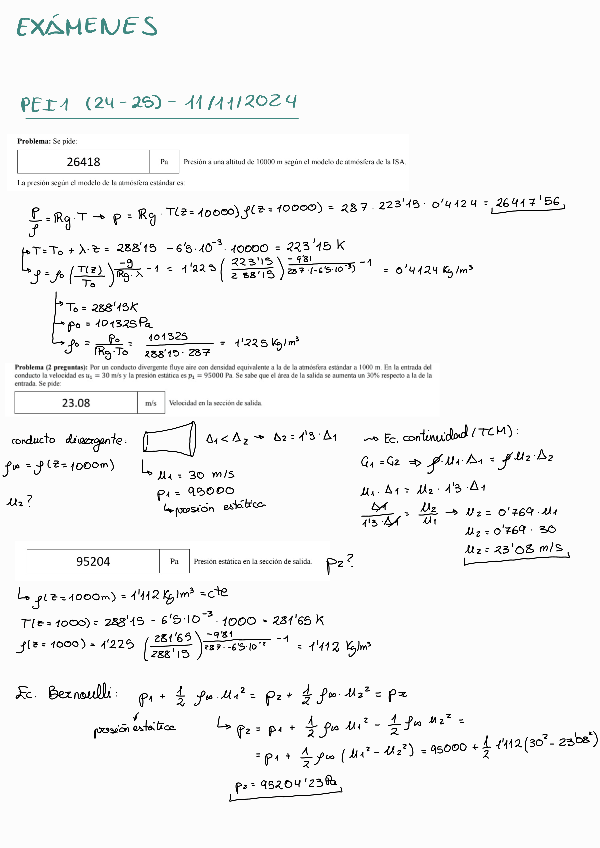 EXÁMENES
PEI1 (24-25) - 11/11/2024
Problema: Se pide:
26418 Pa Presión a una altitud de 10000 m según el modelo de atmósfera de la ISA.
La presión según el modelo de la atmósfera estándar es:
P/ρ = Rg·T → p = Rg · T(z=10000) ρ(z=10000) = 287 · 223'15 · 0'4124 = 26417'56
↳ T = T₀ + λ·z = 288'15 - 6'5·10⁻³ · 10000 = 223'15 K
↳ ρ = ρ₀ (T(z)/T₀)^(-g/(Rg·λ) - 1) = 1'225 (223'15/288'15)^(-9'81/(287·(-6'5·10⁻³)) - 1) = 0'4124 Kg/m³
↳ T₀ = 288'15K
↳ p₀ = 101325 Pa
↳ ρ₀ = p₀/(Rg·T₀) = 101325/(288'15·287) = 1'225 Kg/m³
Problema (2 preguntas): Por un conducto divergente fluye aire con densidad equivalente a la de la atmósfera estándar a 1000 m. En la entrada del
conducto la velocidad es u₁ = 30 m/s y la presión estática es p₁ = 95000 Pa. Se sabe que el área de la salida se aumenta un 30% respecto a la de la
entrada. Se pide:
23.08 m/s Velocidad en la sección de salida.
conducto divergente. A₁ < A₂ → A₂ = 1'3·A₁
ρ∞ = ρ(z=1000m)
u₂?
↳ u₁ = 30 m/s
p₁ = 95000
↳ presión estática
→ Ec. continuidad (TCM):
G₁ = G₂ ⇒ ρ·u₁·A₁ = ρ u₂·A₂
u₁·A₁ = u₂·1'3·A₁
A₁/(1'3·A₁) = u₂/u₁ → u₂ = 0'769·u₁
u₂ = 0'769·30
u₂ = 23'08 m/s
95204 Pa Presión estática en la sección de salida. p₂?
↳ ρ(z=1000m) = 1'112 Kg/m³ = cte
T(z=1000) = 288'15 - 6'5·10⁻³ · 1000 = 281'65 K
ρ(z=1000) = 1'225 (281'65/288'15)^(-9'81/(287·-6'5·10⁻³) - 1) = 1'112 Kg/m³
Ec. Bernoulli: p₁ + 1/2 ρ∞·u₁² = p₂ + 1/2 ρ∞·u₂² = p
presión estática
↳ p₂ = p₁ + 1/2 ρ∞ u₁² - 1/2 ρ∞ u₂² =
= p₁ + 1/2 ρ∞ (u₁² - u₂²) = 95000 + 1/2 1'112 (30² - 23'08²)
p₂ = 95204'23 Pa